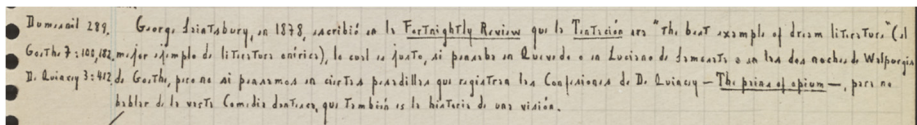 Dumesnil 289. George Saintsbury, en 1878, escribió en la Fortnightly Review que la Tentación era "the best example of dream literature" (el
Goethe 7:100,182. mejor ejemplo de literatura onírica), lo cual es justo, si pensamos en Quevedo o en Luciano de Samosata o en las dos noches de Walpurgis
De Quincey 3:412 de Goethe, pero no si pensamos en ciertas pesadillas que registran las Confesiones de De Quincey — The pains of opium —, para no
hablar de la vasta Comedia dantesca, que también es la historia de una visión.